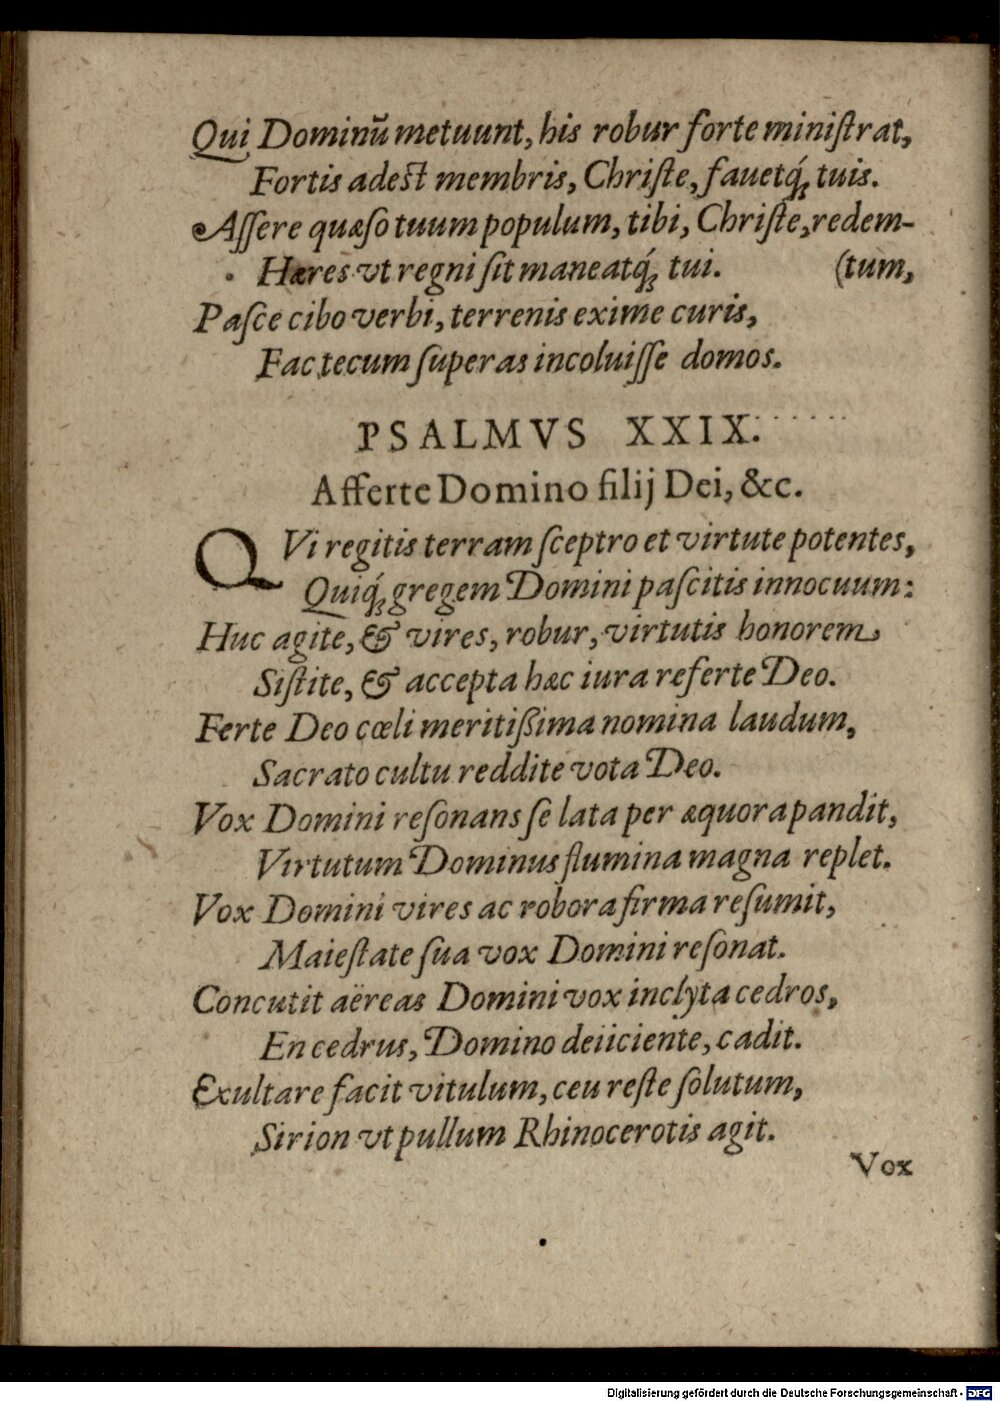 Qui Dominū metuunt, his robur forte miniſtrat,
Fortis adeſt membris, Chriſte, fauetq́; tuis.
Aſſere quæſo tuum populum, tibi, Chriſte, redem-
Hæres vt regni ſit maneatq́; tui. (tum,
Paſce cibo verbi, terrenis exime curis,
Fac tecum ſuperas incoluiſſe domos.
PSALMVS XXIX.
Afferte Domino filij Dei, &c.
QVi regitis terram ſceptro et virtute potentes,
Quiq́; gregem Domini paſcitis innocuum:
Huc agite, & vires, robur, virtutis honorem
Siſtite, & accepta hæc iura referte Deo.
Ferte Deo cœli meritißima nomina laudum,
Sacrato cultu reddite vota Deo.
Vox Domini reſonans ſe lata per æquora pandit,
Virtutum Dominus flumina magna replet.
Vox Domini vires ac robora firma reſumit,
Maieſtate ſua vox Domini reſonat.
Concutit aëreas Domini vox inclyta cedros,
En cedrus, Domino deiiciente, cadit.
Exultare facit vitulum, ceu reſte ſolutum,
Sirion vt pullum Rhinocerotis agit.
Vox
Digitalisierung gefördert durch die Deutsche Forschungsgemeinschaft - DFG